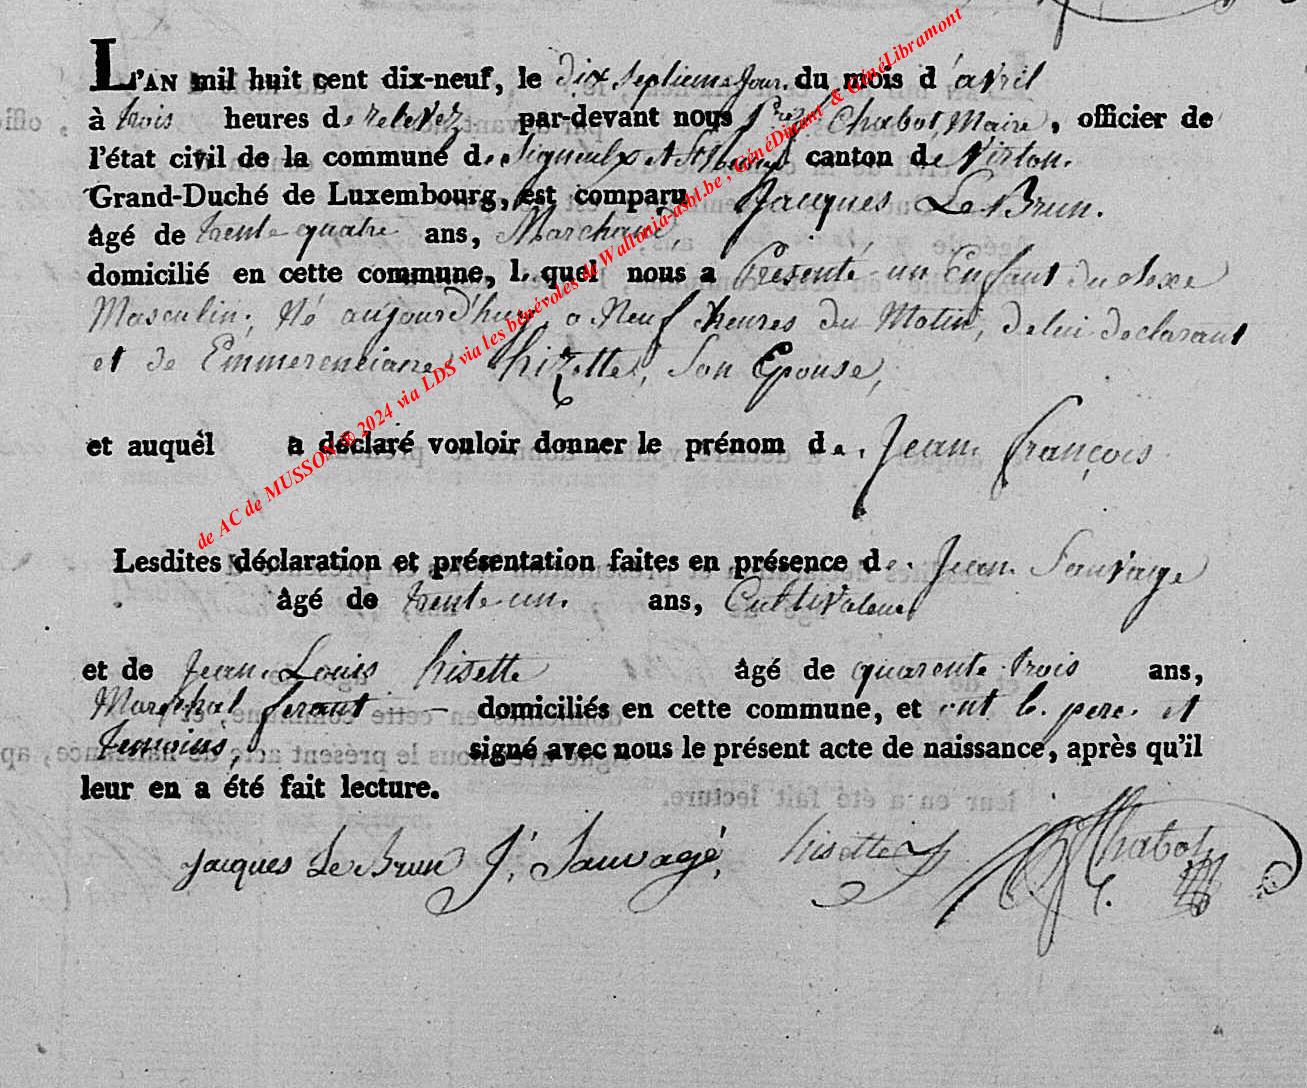 L'AN mil huit cent dix-neuf, le dix septieme Jour. du mois d'avril
à trois heures de relevez par-devant nous Chabot Maire, officier de
l'état civil de la commune de Signeulx et canton de Virton.
Grand-Duché de Luxembourg, est comparu Jacques Le Brun.
âgé de trente quatre ans, Marchand,
domicilié en cette commune, lequel nous a Presenté un Enfant du Sexe
Masculin, Né aujourd'huy a Neuf heures du Matin, de lui declarant
et de Emmerenciane hizette, Son Epouse,
et auquel a déclaré vouloir donner le prénom de. Jean françois
Lesdites déclaration et présentation faites en présence de. Jean Sauvage
âgé de trente un. ans, Cultivateur
et de Jean Louis hisette âgé de quarente trois ans,
Marechal ferant — domiciliés en cette commune, et ont le pere et
temoins, signé avec nous le présent acte de naissance, après qu'il
leur en a été fait lecture.
Jacques Le Brun J. Sauvagé, hisette Chabot
de AC de MUSSON © 2024 via LDS via les bénévoles de Wallonia-asbl.be, GénéDinant & GénéLibramont